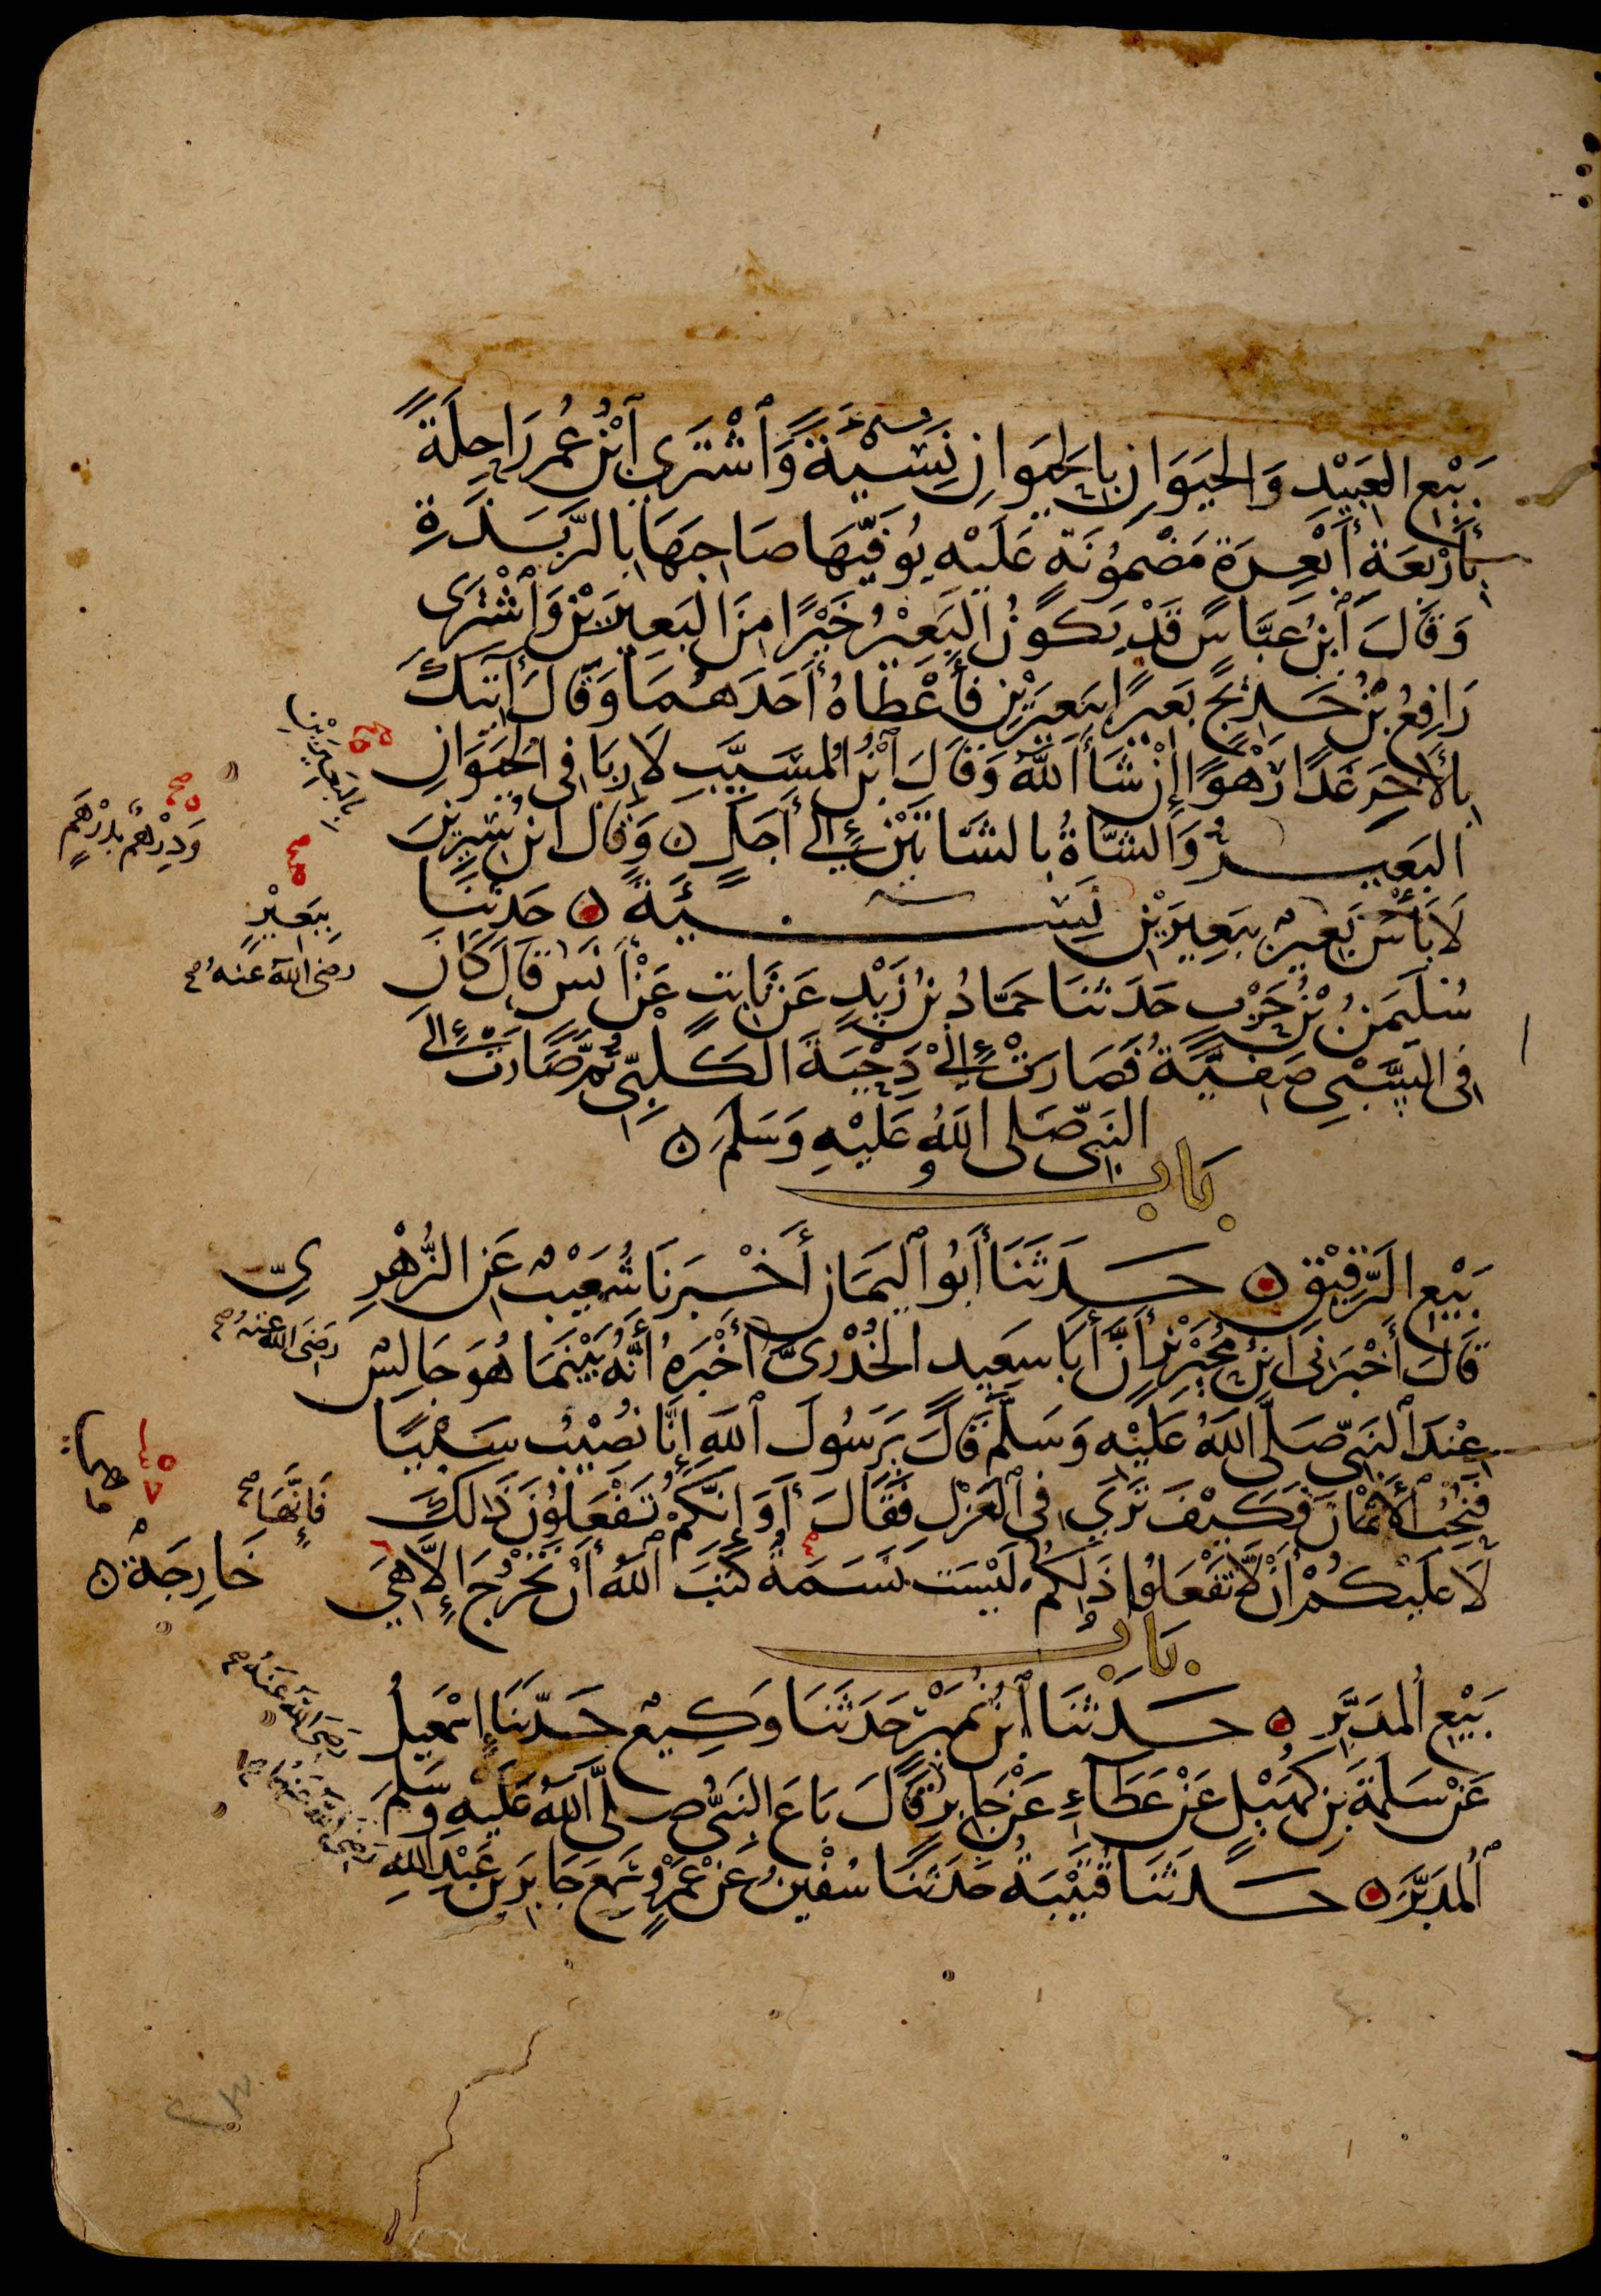 بَيْعِ العَبِيْدِ وَالحَيَوَانِ بِالحَيَوَانِ نَسِيْئَةً وَٱشْتَرَى ٱبْنُ عُمَرَ رَاحِلَةً
بِأَرْبَعَةِ أَبْعِرَةٍ مَضْمُونَةٍ عَلَيْهِ يُوَفِّيهَا صَاحِبَهَا بِالرَّبَذَةِ
وَقَالَ ٱبْنُ عَبَّاسٍ قَدْ يَكُونُ البَعِيْرُ خَيْرًا مِنَ البَعِيرَيْنِ وَٱشْتَرَى
رَافِعُ بْنُ خَدِيْجٍ بَعِيرًا بِبَعِيرَيْنِ فَأَعْطَاهُ أَحَدَهُمَا وَقَالَ آتِيكَ
بِالْأَخَرِ غَدًا رَهْوًا إِنْ شَاءَ ٱللَّهُ وَقَالَ ٱبْنُ المُسَيَّبِ لَا رِبَا فِى الحَيَوَانِ
البَعِيرُ وَالشَّاةُ بِالشَّاتَيْنِ إِلَى أَجَلٍ ۝ وَقَالَ ابْنُ سِيرِينَ
لَا بَأْسَ بَعِيرٌ بِبَعِيرَيْنِ نَسِيئَةً ۝ حَدَّثَنَا
سُلَيْمَنُ بْنُ حَرْبٍ حَدَّثَنَا حَمَّادُ بْنُ زَيْدٍ عَنْ ثَابِتٍ عَنْ أَنَسٍ قَالَ كَانَ
فِى السَّبْىِ صَفِيَّةُ فَصَارَتْ إِلَى دِحْيَةَ الكَلْبِىِّ ثُمَّ صَارَتْ إِلَى
النَّبِىِّ صَلَّى اللهُ عَلَيْهِ وَسَلَّمَ ۝
بَاب
بَيْعِ الرَّقِيْقِ ۝ حَدَّثَنَا أَبُو ٱليَمَانِ أَخْبَرَنَا شُعَيْبٌ عَنِ الزُّهْرِىِّ
قَالَ أَخْبَرَنِى ابْنُ مُحَيْرِيْزٍ أَنَّ أَبَا سَعِيدٍ الخُدْرِىَّ أَخْبَرَهُ أَنَّهُ بَيْنَمَا هُوَ جَالِسٌ
عِنْدَ ٱلنَّبِىِّ صَلَّى ٱللهُ عَلَيْهِ وَسَلَّمَ قَالَ يَرَسُولَ ٱللهِ إِنَّا نُصِيْبُ سَبْيًا
فَنُحِبُّ ٱلْأَثْمَانَ فَكَيْفَ تَرَى فِى ٱلعَزْلِ فَقَالَ أَوَ إِنَّكُمْ تَفْعَلُوْنَ ذَالِكَ
لَا عَلَيْكُمْ أَنْ لَّا تَفْعَلُوا ذَلِكُمْ لَيْسَت نَسَمَةٌ كَتَبَ ٱللهُ أَنْ تَخْرُجَ إِلَّا هِىَ خَارِجَةٌ ۝
بَاب
بَيْعِ المُدَبَّرِ ۝ حَدَّثَنَا ٱبْنُ نُمَيْرٍ حَدَّثَنَا وَكِيعٌ حَدَّثَنَا إِسْمَعِيلُ
عَنْ سَلَمَةَ بْنِ كُهَيْلٍ عَنْ عَطَاءٍ عَنْ جَابِرٍ قَالَ بَاعَ النَّبِىُّ صَلَّى ٱللهُ عَلَيْهِ وَسَلَّمَ
ٱلْمُدَبَّرَ ۝ حَدَّثَنَا قُتَيْبَةُ حَدَّثَنَا سُفْيَنُ عَنْ عَمْرٍو سَمِعَ جَابِرَ بْنَ عَبْدِ اللهِ
بِالبَعِيرَيْنِ
وَدِرْهَمٌ بِدِرْهَمٍ
بِبَعِيْرٍ
رضى الله عَنهُ
رَضِىَ الله عنهُ
فَإِنَّهَا
رَضِىَ اللهُ عَنْهُ
رَضِىَ اللهُ عَنْهُمَا